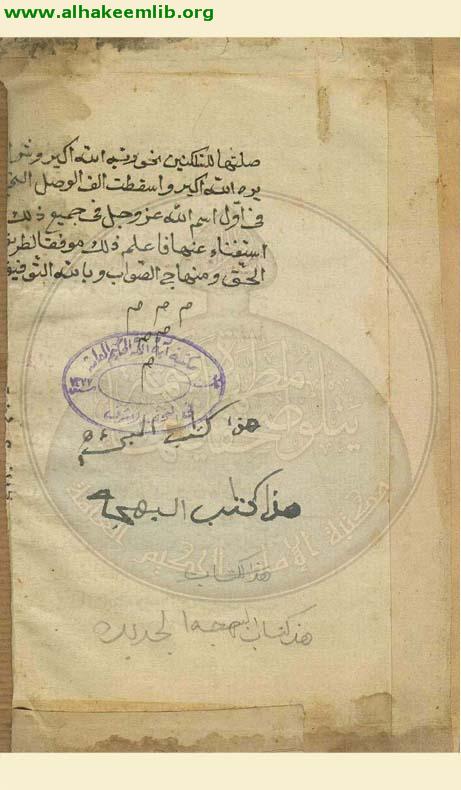 www.alhakeemlib.org
صلتها للتاكنين نحو ربه الله اكبر و
يره الله اكبر واسقطت الف الوصل
فى اول اسم الله عز وجل فى جميع ذلك
استغناء عنها فاعلم ذلك موفقا
الحق ومنهاج الصواب وبالله التوفيق
م م م
م م
م
هذا كتاب
هذا كتاب البهجه
هذا الكتاب
هذ كتاب البهجه الجديده